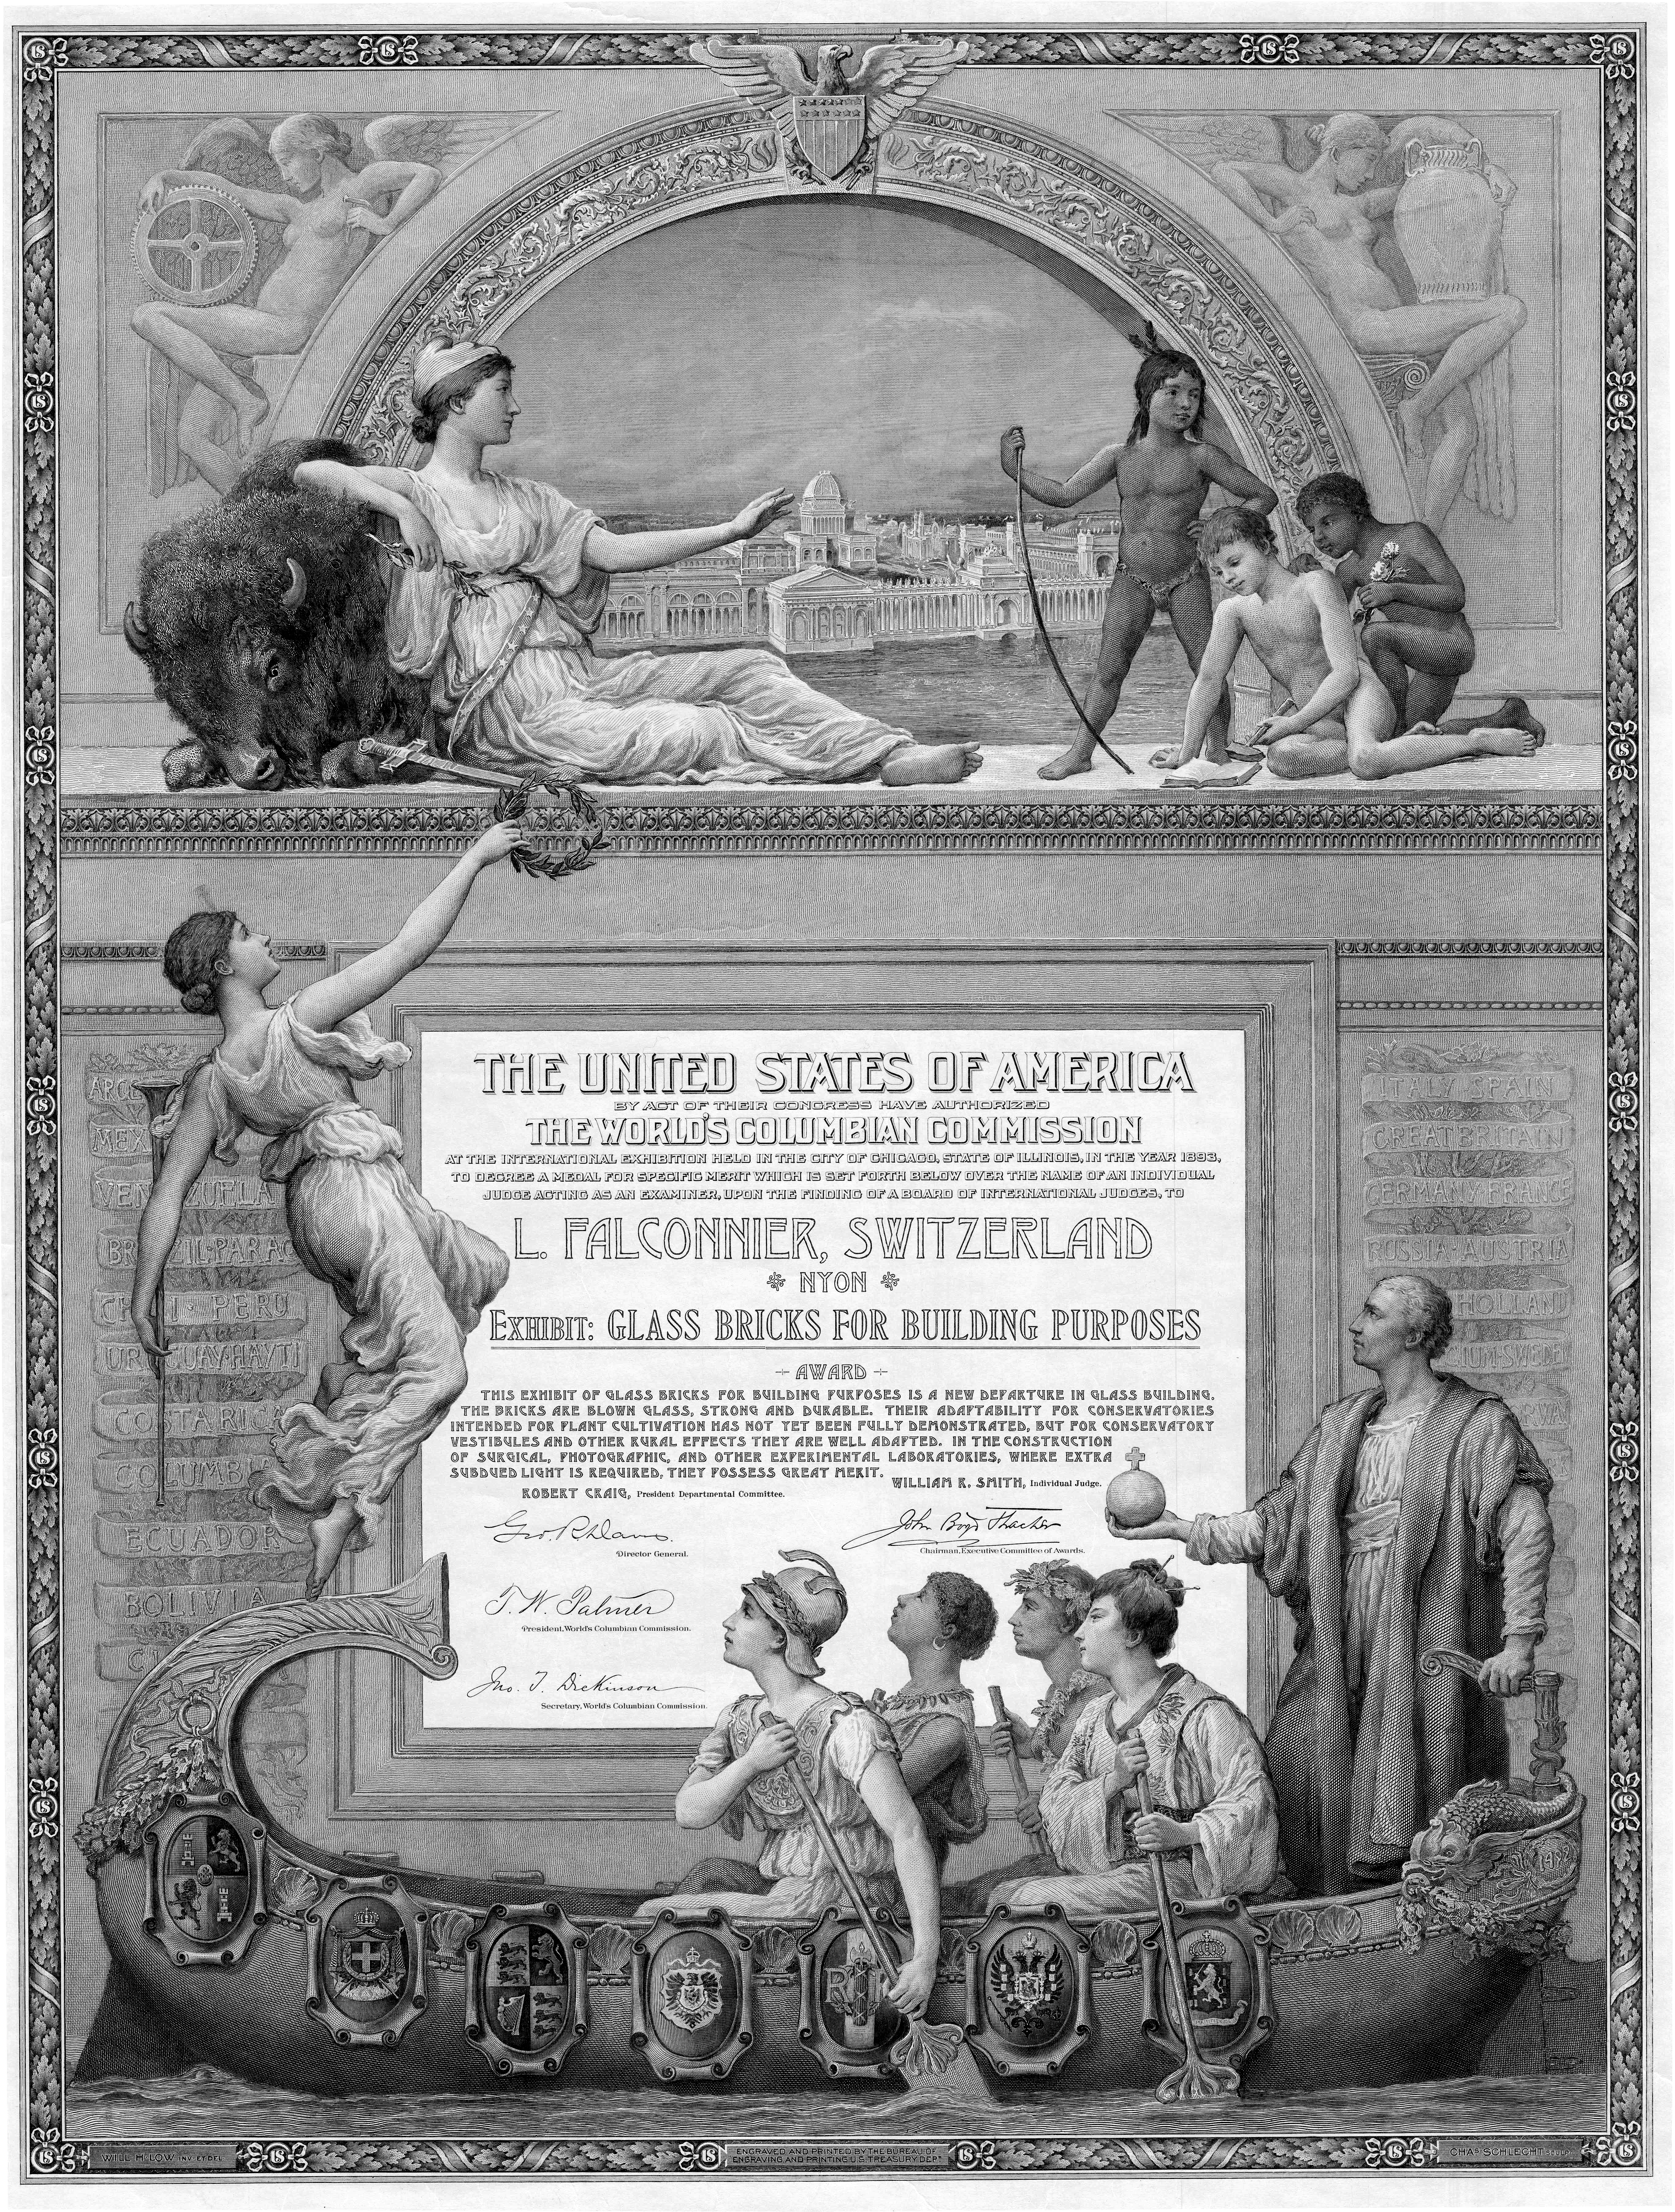 THE UNITED STATES OF AMERICA
BY ACT OF THEIR CONGRESS HAVE AUTHORIZED
THE WORLD'S COLUMBIAN COMMISSION
AT THE INTERNATIONAL EXHIBITION HELD IN THE CITY OF CHICAGO, STATE OF ILLINOIS, IN THE YEAR 1893,
TO DECREE A MEDAL FOR SPECIFIC MERIT WHICH IS SET FORTH BELOW OVER THE NAME OF AN INDIVIDUAL
JUDGE ACTING AS AN EXAMINER, UPON THE FINDING OF A BOARD OF INTERNATIONAL JUDGES, TO
L. FALCONNIER, SWITZERLAND
NYON
EXHIBIT: GLASS BRICKS FOR BUILDING PURPOSES
AWARD
THIS EXHIBIT OF GLASS BRICKS FOR BUILDING PURPOSES IS A NEW DEPARTURE IN GLASS BUILDING.
THE BRICKS ARE BLOWN GLASS, STRONG AND DURABLE. THEIR ADAPTABILITY FOR CONSERVATORIES
INTENDED FOR PLANT CULTIVATION HAS NOT YET BEEN FULLY DEMONSTRATED, BUT FOR CONSERVATORY
VESTIBULES AND OTHER RURAL EFFECTS THEY ARE WELL ADAPTED. IN THE CONSTRUCTION
OF SURGICAL, PHOTOGRAPHIC, AND OTHER EXPERIMENTAL LABORATORIES, WHERE EXTRA
SUBDUED LIGHT IS REQUIRED, THEY POSSESS GREAT MERIT.
WILLIAM R. SMITH, Individual Judge.
ROBERT CRAIG, President Departmental Committee.
Geo. R. Davis.
Director General.
John Boyd Thacher
Chairman, Executive Committee of Awards.
T. W. Palmer
President, World's Columbian Commission.
Jno. T. Dickinson
Secretary, World's Columbian Commission.
ARGE
MEX
VENEZUELA
BRAZIL·PARAG
CHILI·PERU
URUGUAY·HAYTI
COSTA RICA
COLUMBIA
ECUADOR
BOLIVIA
ITALY SPAIN
GREAT BRITAIN
GERMANY FRANCE
RUSSIA·AUSTRIA
HOLLAND
IUM·SWEDE
RF
1492
US
WILL H. LOW INV. ET DEL.
ENGRAVED AND PRINTED BY THE BUREAU OF
ENGRAVING AND PRINTING U.S. TREASURY DEPT
CHAS SCHLECHT SCULPT